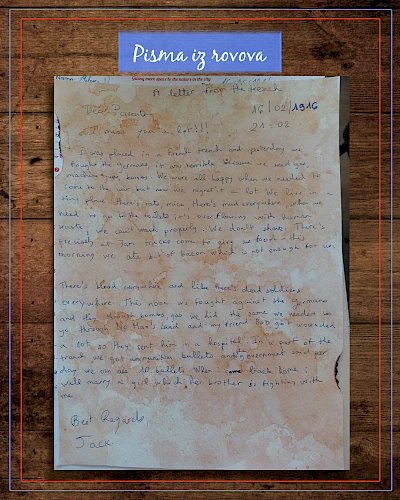 Pisma iz rovova
giving more space to the nature in the city
A letter from the trench
Dear Parents 16/02/1916
I miss you a lot!!! 21:03
I was placed in a trench and yesterday we
fought the germans, it was terrible because we used gas,
machine guns, bombs. We were all happy when we needed to
come to the war but now we regret it a lot. We live in a
tiny place there's rats, mice, there's mud everywhere, when we
need to go to the toilets it's overflowing with human
waste, we can't wash properly. We don't shave. There's
precisely at 7am trucks come to give us food this
morning we ate bit of bacon which is not enough for us.
There's blood everywhere and like there's dead soldiers
everywhere. This noon we fought against the germans
and they bombs, gas we did the same we needed to
go through No Man's Land and my friend got wounded
a lot so they sent him in a hospital. In a part of the
trench we got ammunition bullets and government said per
day we can use 10 bullets. When come back home I
will marry a girl which her brother is fighting with
me.
Best Regards
Jack.